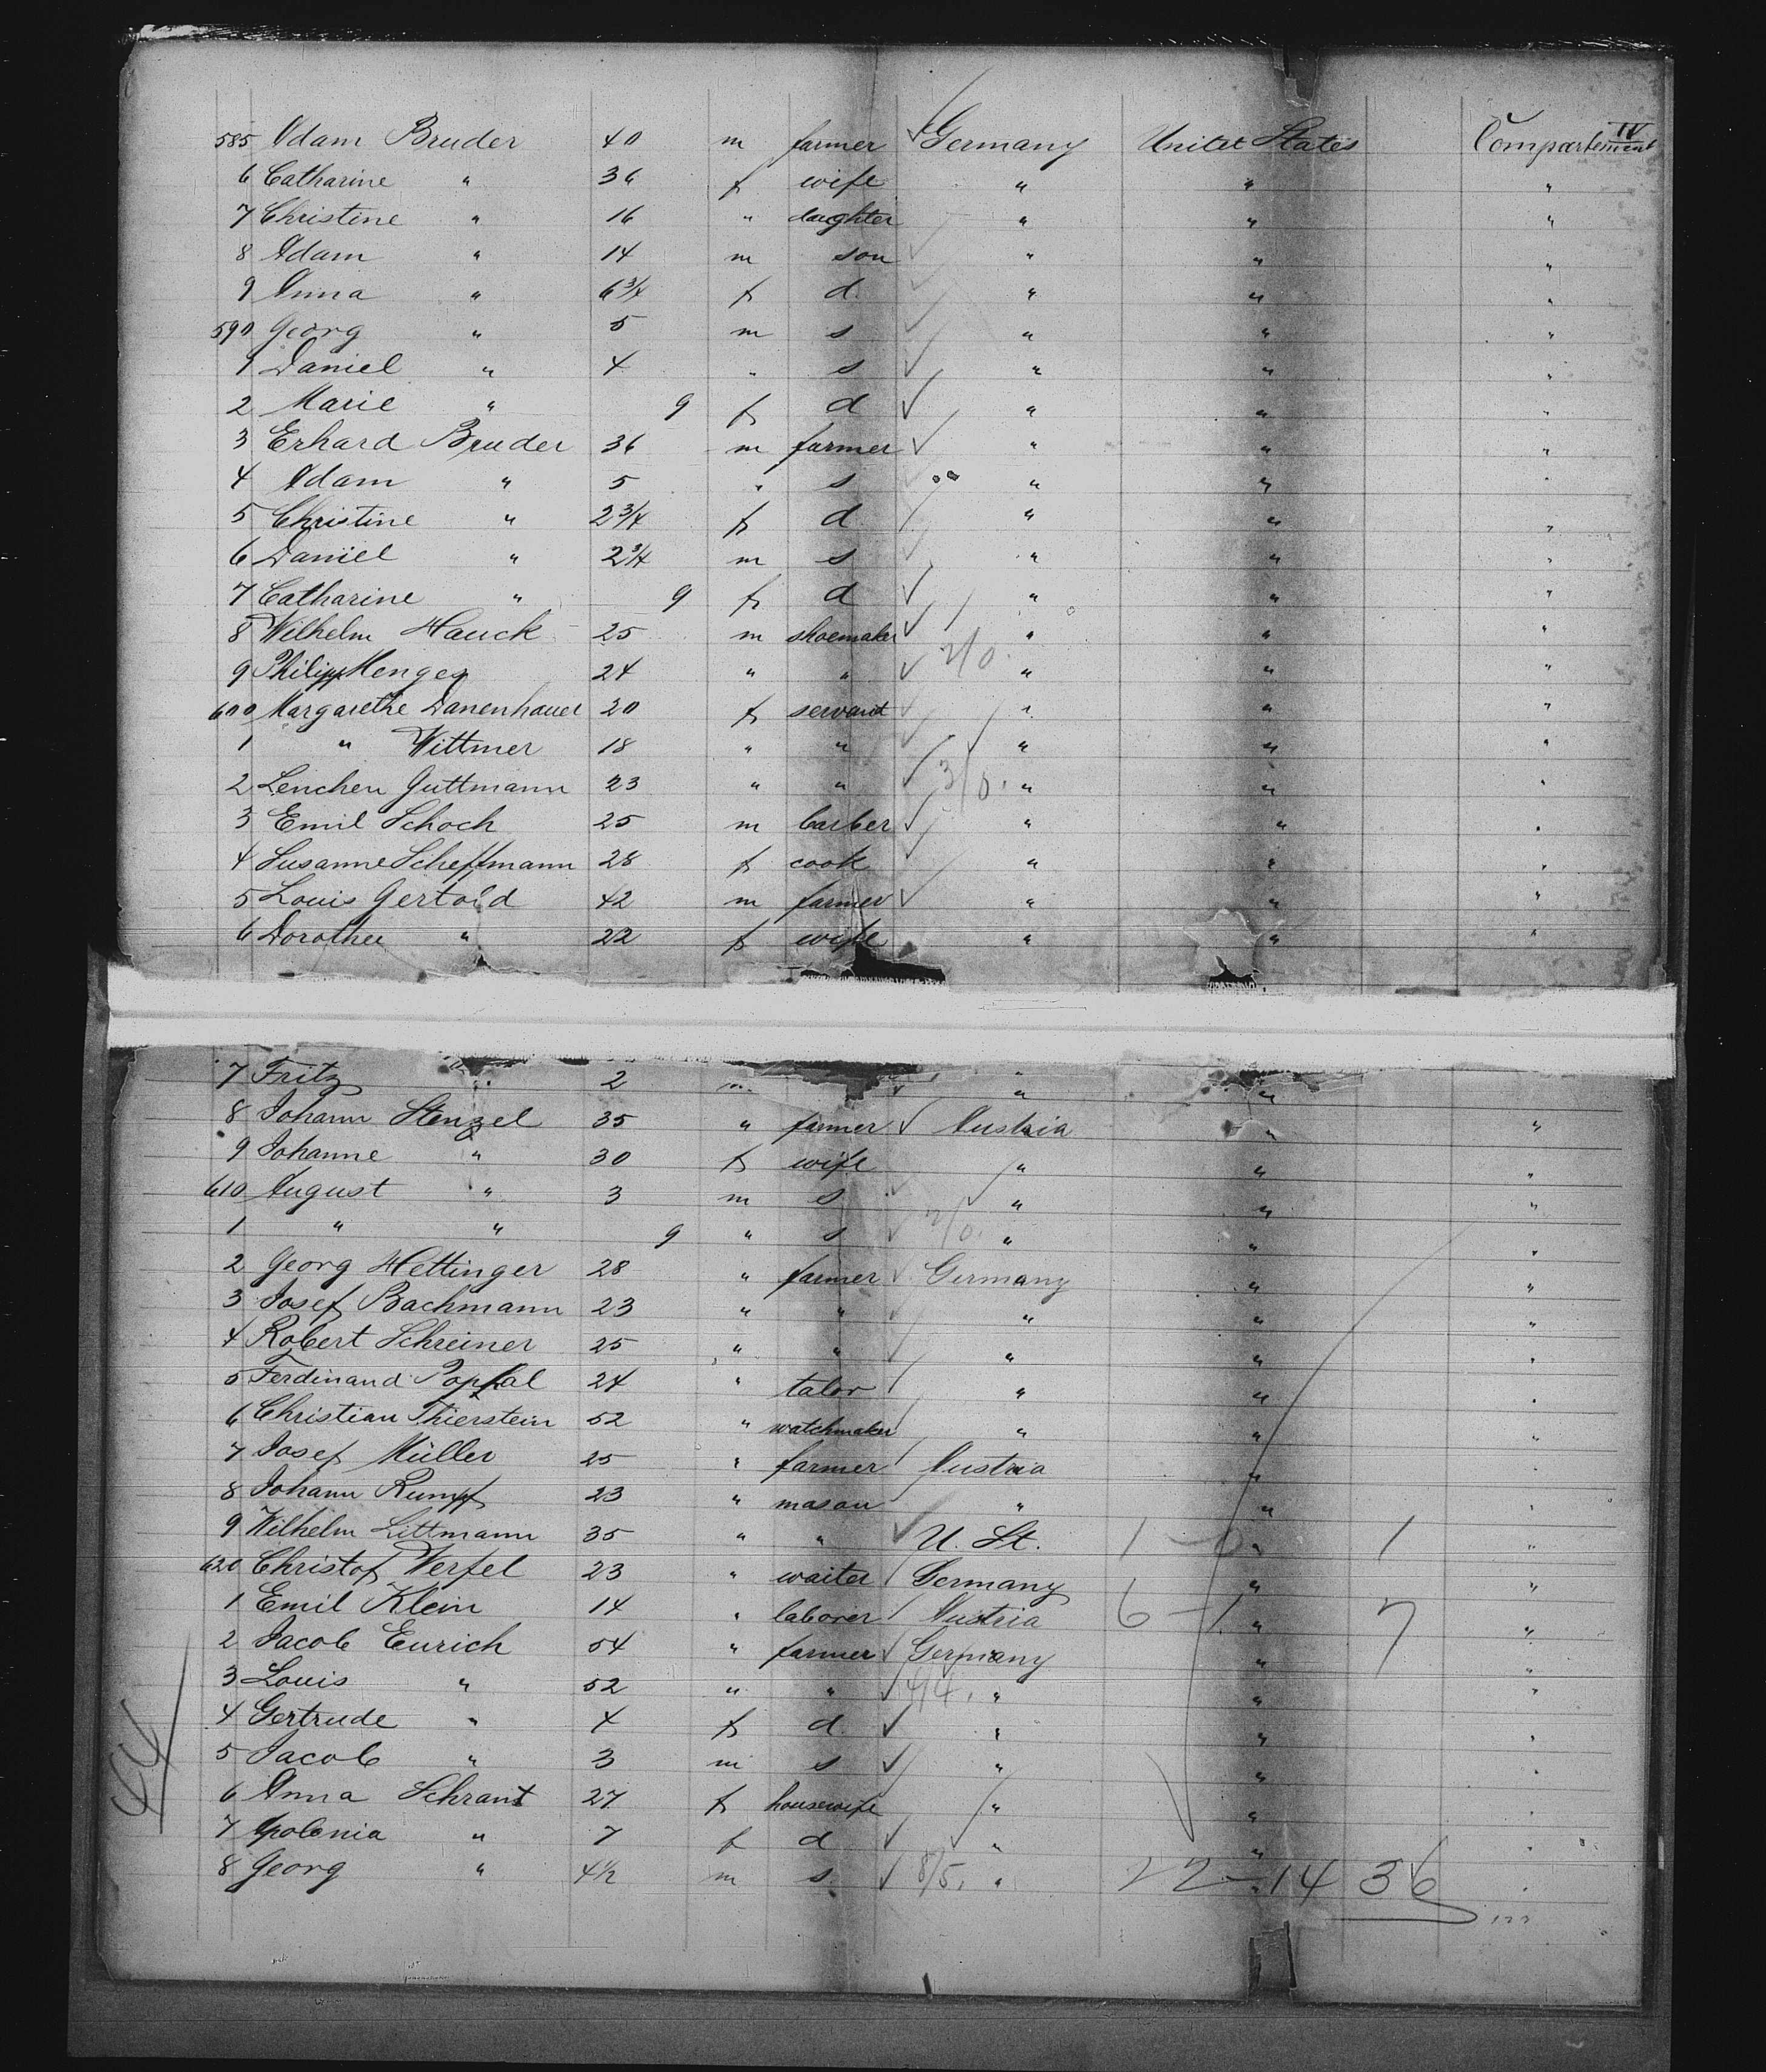 585 Adam Bruder 40 m farmer Germany United States Compartement IV
6 Catharine " 36 f wife " " "
7 Christine " 16 " daughter " " "
8 Adam " 14 m son " " "
9 Anna " 6 3/4 f d. " " "
590 Georg " 5 m s " " "
1 Daniel " 4 " s " " "
2 Marie " 9 f d " " "
3 Erhard Bruder 36 m farmer " " "
4 Adam " 5 " s " " "
5 Christine " 2 3/4 f d " " "
6 Daniel " 2 3/4 m s " " "
7 Catharine " 9 f d " " "
8 Wilhelm Hauck 25 m shoemaker " " "
9 Philipp Menges 24 " " 2/0. " " "
600 Margarethe Danenhauer 20 f servant " " "
1 " Wittmer 18 " " " " "
2 Lenchen Guttmann 23 " " 3/0. " " "
3 Emil Schoch 25 m barber " " "
4 Susanne Scheffmann 28 f cook " " "
5 Louis Gertoid 42 m farmer " " "
6 Dorothee " 22 f wife " " "
7 Fritz " 2 m " "
8 Johann Stenzel 35 " farmer Austria " "
9 Johanne " 30 f wife " " "
610 August " 3 m s " " "
1 " " 9 " s 2/0. " " "
2 Georg Hettinger 28 " farmer Germany " "
3 Josef Bachmann 23 " " " " "
4 Robert Schreiner 25 " " " " "
5 Ferdinand Popfal 24 " talor " " "
6 Christian Thierstein 52 " watchmaker " " "
7 Josef Müller 25 " farmer Austria " "
8 Johann Rumpf 23 " mason " " "
9 Wilhelm Littmann 35 " " U. St. 1 - 0 " 1 "
620 Christof Werfel 23 " waiter Germany " "
1 Emil Klein 14 " laborer Austria 6 - 1 " 7 "
2 Jacob Eurich 54 " farmer Germany " "
3 Louis " 52 " " 4/4. " " "
4 Gertrude " 4 f d. " " "
5 Jacob " 3 m s " " "
6 Anna Schrant 27 f housewife " " "
7 Apolonia " 7 f d " " "
8 Georg " 4 1/2 m s. 8/5. " 22 - 14 36 "
44